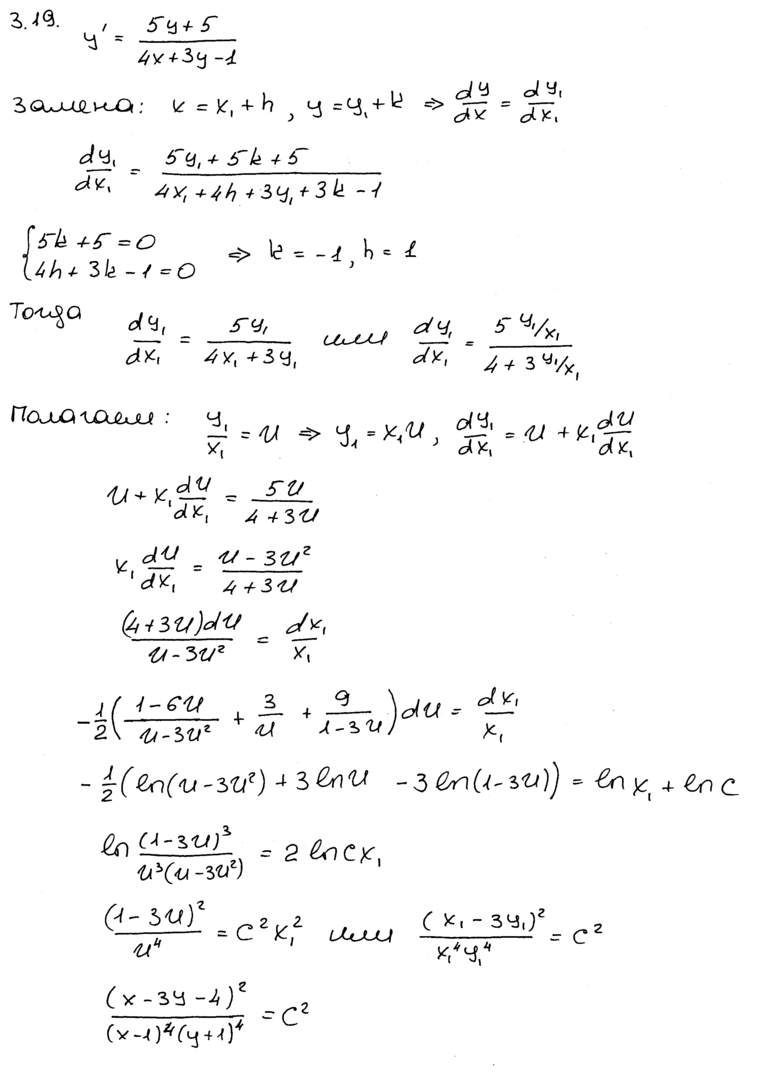 3.19. y' = (5y+5)/(4x+3y-1)
Замена: x = x₁ + h, y = y₁ + k ⇒ dy/dx = dy₁/dx₁
dy₁/dx₁ = (5y₁ + 5k + 5)/(4x₁ + 4h + 3y₁ + 3k - 1)
{5k + 5 = 0
{4h + 3k - 1 = 0 ⇒ k = -1, h = 1
Тогда dy₁/dx₁ = 5y₁/(4x₁ + 3y₁) или dy₁/dx₁ = (5 y₁/x₁)/(4 + 3 y₁/x₁)
Полагаем: y₁/x₁ = u ⇒ y₁ = x₁u, dy₁/dx₁ = u + x₁ du/dx₁
u + x₁ du/dx₁ = 5u/(4 + 3u)
x₁ du/dx₁ = (u - 3u²)/(4 + 3u)
(4 + 3u)du/(u - 3u²) = dx₁/x₁
-1/2((1 - 6u)/(u - 3u²) + 3/u + 9/(1 - 3u))du = dx₁/x₁
-1/2(ln(u - 3u²) + 3 ln u - 3 ln(1 - 3u)) = ln x₁ + ln c
ln (1 - 3u)³/(u³(u - 3u²)) = 2 ln cx₁
(1 - 3u)²/u⁴ = c²x₁² или (x₁ - 3y₁)²/(x₁⁴y₁⁴) = c²
(x - 3y - 4)²/((x - 1)⁴(y + 1)⁴) = c²